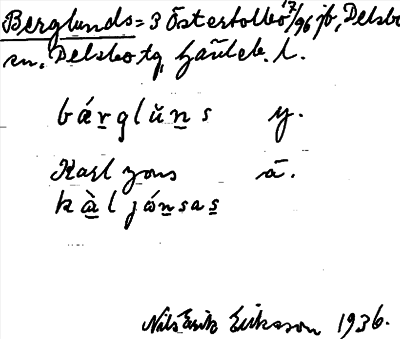 Berglunds = 3 Österbolbo 17/96 jb, Delsbo
sn, Delsbo tg, Hälsingl. l.
bárglŭns y.
Karl jons ā.
kàljónsas
Nils Erik Eriksson 1936.